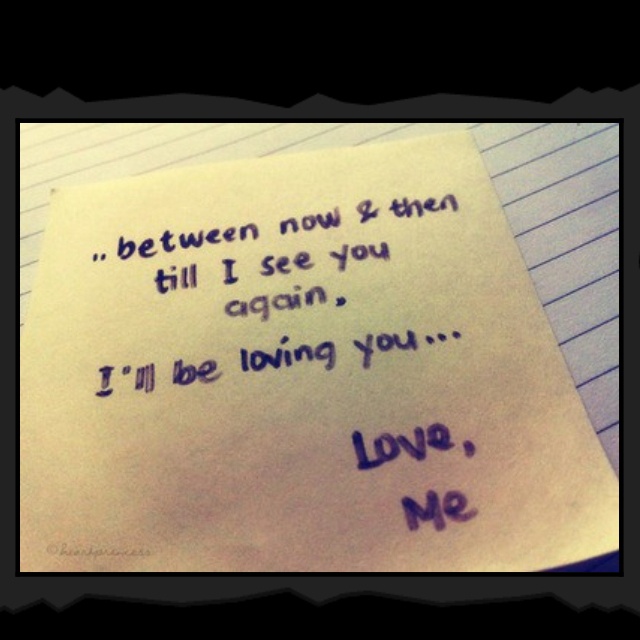 ..between now & then
till I see you
again.
I'll be loving you...
Love,
Me